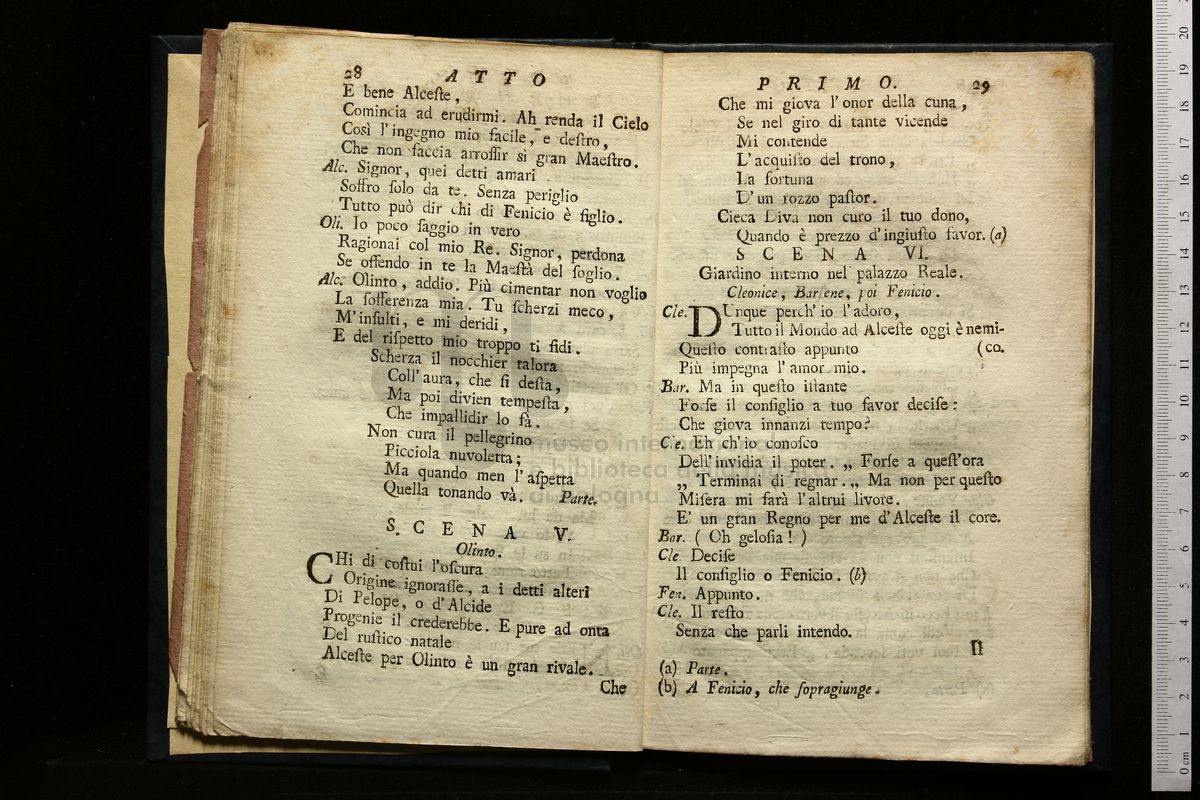 28 ATTO
E bene Alceſte,
Comincia ad erudirmi. Ah renda il Cielo
Così l'ingegno mio facile, e deſtro,
Che non faccia arroſſir sì gran Maeſtro.
Alc. Signor, quei detti amari
Soffro ſolo da te. Senza periglio
Tutto può dir chi di Fenicio è figlio.
Oli. Io poco ſaggio in vero
Ragionai col mio Re. Signor, perdona
Se offendo in te la Maeſtà del ſoglio.
Alc. Olinto, addio. Più cimentar non voglio
La ſofferenza mia. Tu ſcherzi meco,
M'inſulti, e mi deridi,
E del riſpetto mio troppo ti fidi.
Scherza il nocchier talora
Coll'aura, che ſi deſta,
Ma poi divien tempeſta,
Che impallidir lo fà.
Non cura il pellegrino
Picciola nuvoletta;
Ma quando men l'aſpetta
Quella tonando và. Parte.
SCENA V.
Olinto.
CHi di coſtui l'oſcura
Origine ignoraſſe, a i detti alteri
Di Pelope, o d'Alcide
Progenie il crederebbe. E pure ad onta
Del ruſtico natale
Alceſte per Olinto è un gran rivale.
Che
PRIMO. 29
Che mi giova l'onor della cuna,
Se nel giro di tante vicende
Mi contende
L'acquiſto del trono,
La fortuna
D'un rozzo paſtor.
Cieca Diva non curo il tuo dono,
Quando è prezzo d'ingiuſto favor. (a)
SCENA VI.
Giardino interno nel palazzo Reale.
Cleonice, Barſene, poi Fenicio.
Cle. DUnque perch'io l'adoro,
Tutto il Mondo ad Alceſte oggi è nemi-
Queſto contraſto appunto (co.
Più impegna l'amor mio.
Bar. Ma in queſto iſtante
Forſe il conſiglio a tuo favor deciſe:
Che giova innanzi tempo?
Cle. Eh ch'io conoſco
Dell'invidia il poter. „ Forſe a queſt'ora
„ Terminai di regnar. „ Ma non per queſto
Miſera mi farà l'altrui livore.
E' un gran Regno per me d'Alceſte il core.
Bar. ( Oh geloſia! )
Cle. Deciſe
Il conſiglio o Fenicio. (b)
Fen. Appunto.
Cle. Il reſto
Senza che parli intendo.
Il
(a) Parte.
(b) A Fenicio, che ſopragiunge.